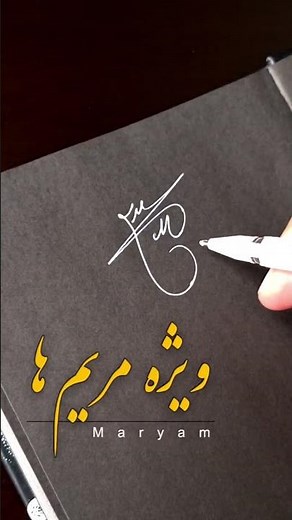 ویژه مریم ها
Maryam